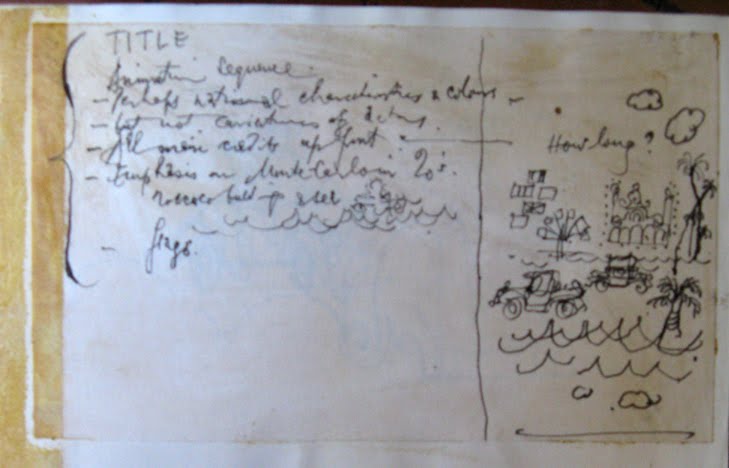 TITLE
Animation Sequence
- Perhaps national characteristics & colours -
- but not caricatures of actors.
- All main credits up front.
- Emphasis on Monte Carlo in 20's.
rococo build up
How long?
-